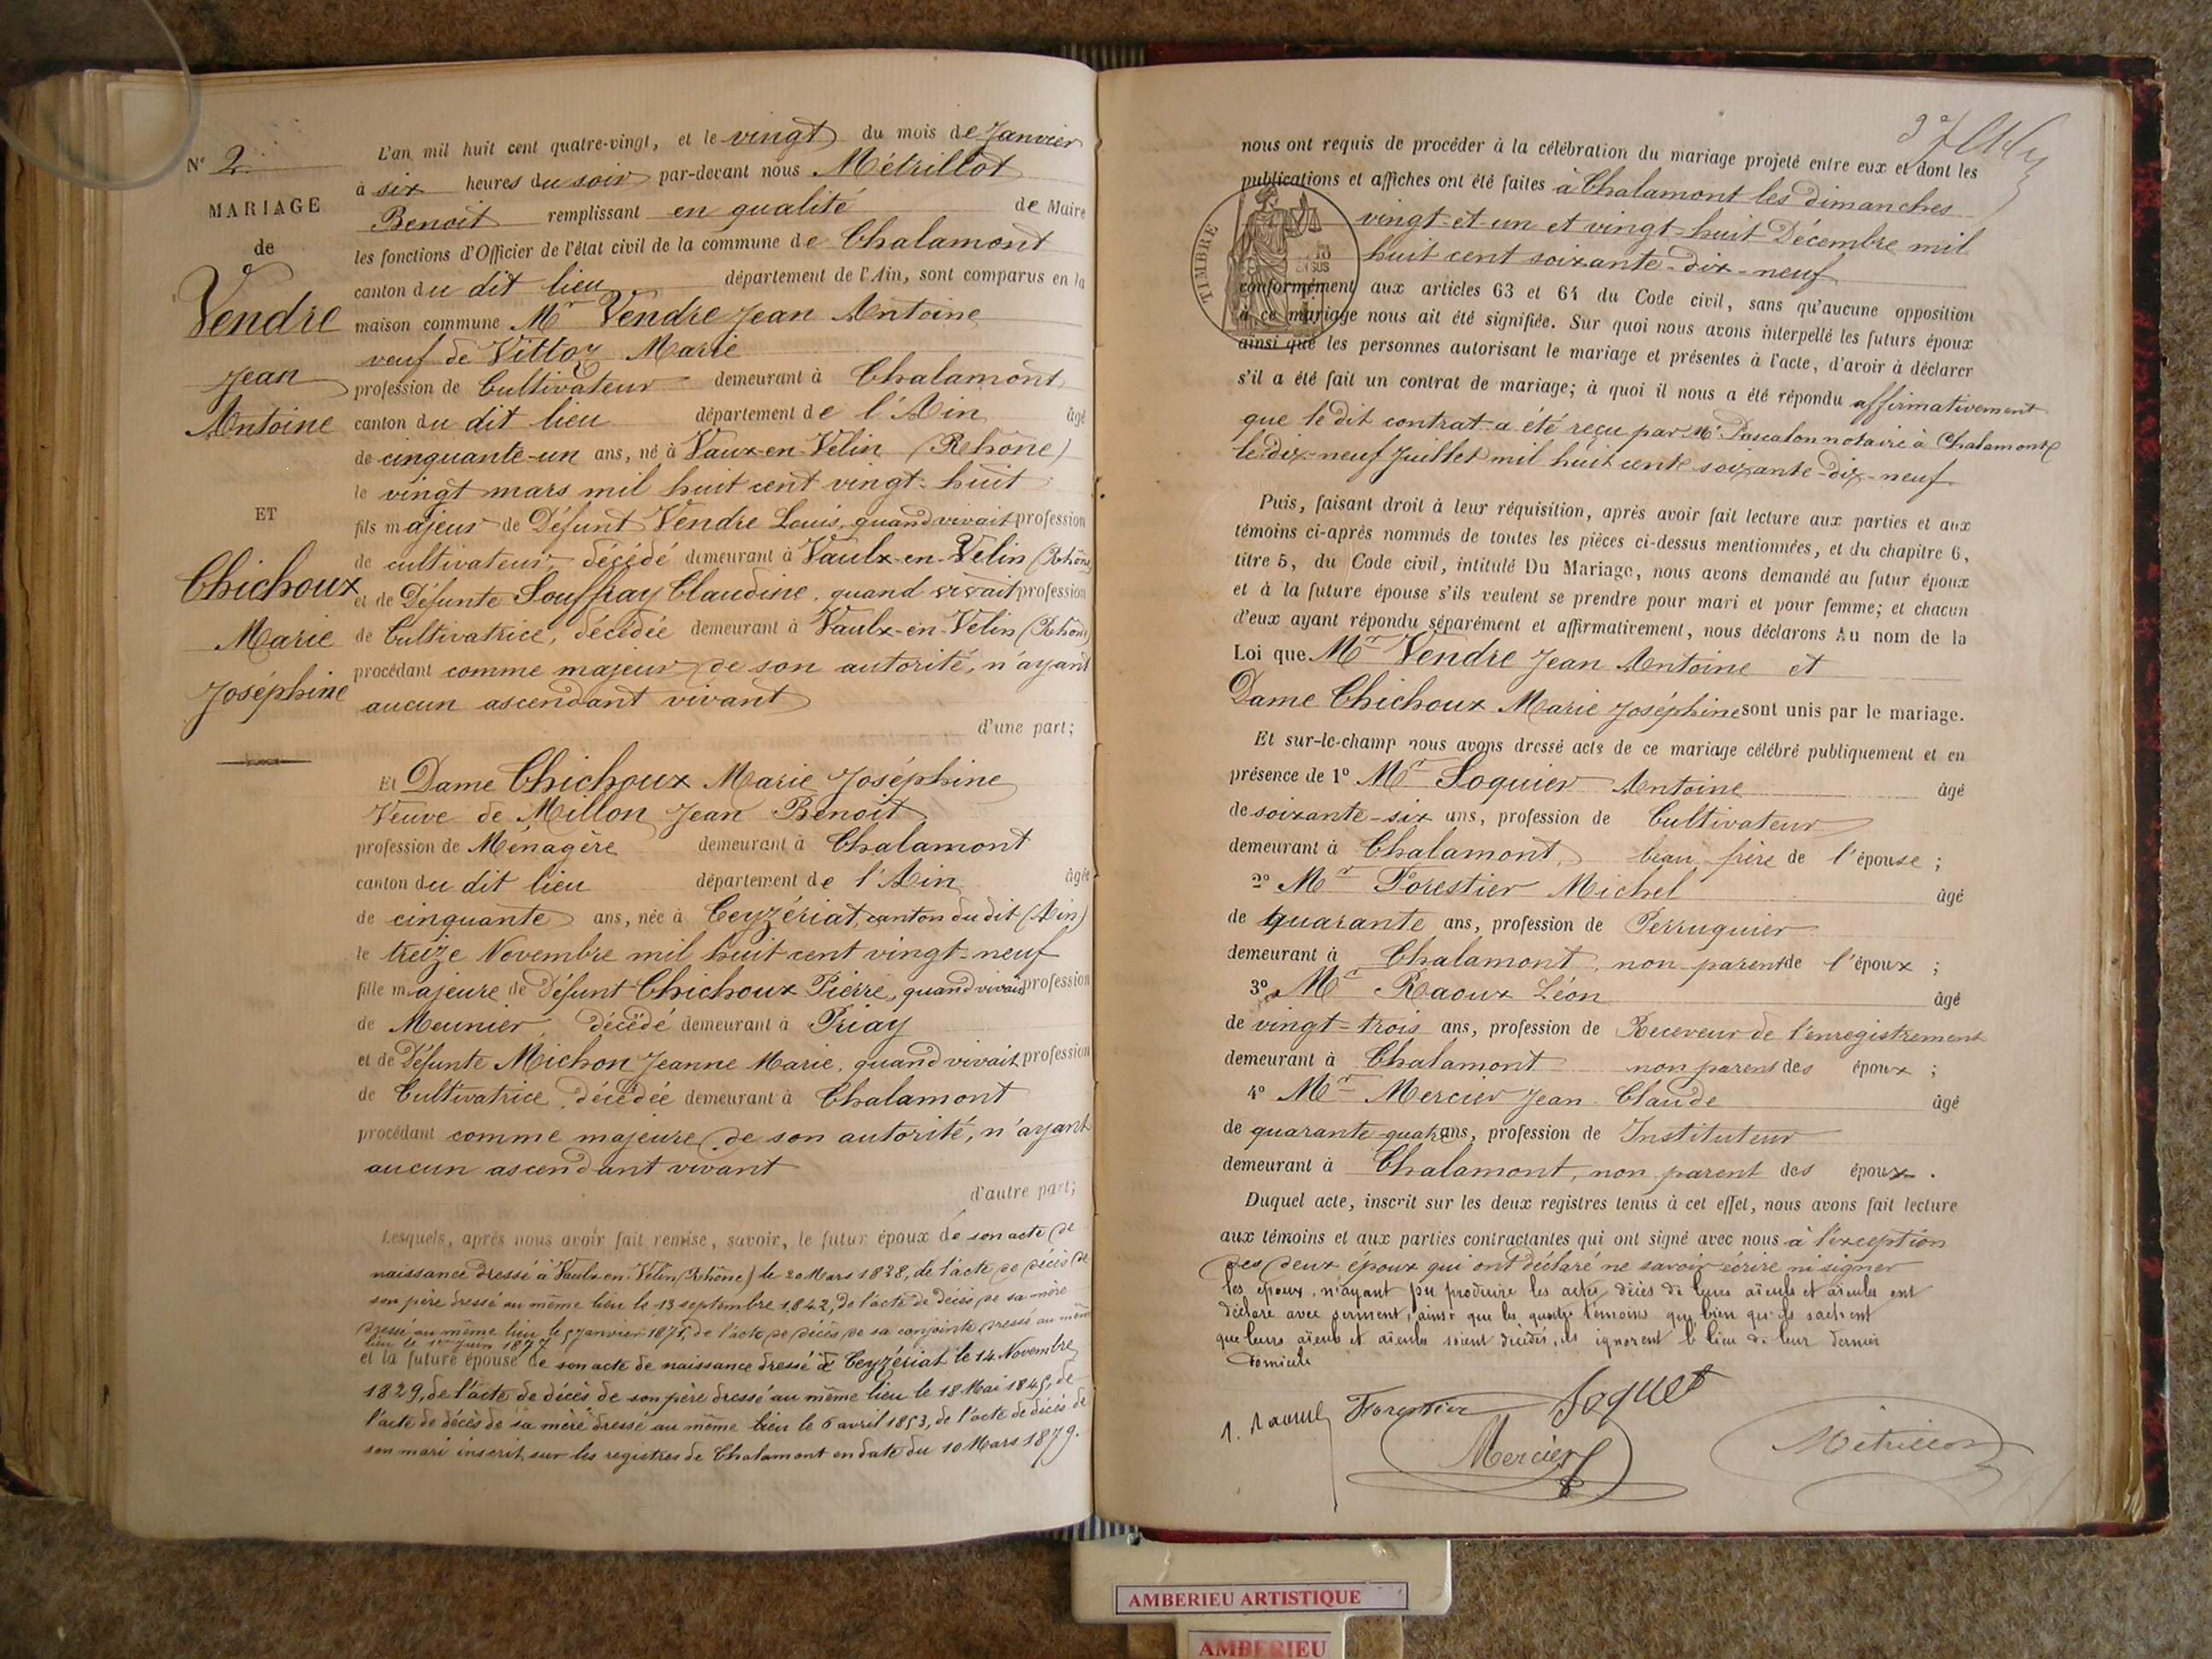 N° 2
MARIAGE
de
Vendre
Jean
Antoine
ET
Chichoux
Marie
Joséphine
L'an mil huit cent quatre-vingt, et le vingt du mois de Janvier
à six heures du soir par-devant nous Métrillot
Benoit remplissant en qualité de Maire
les fonctions d'Officier de l'état civil de la commune de Chalamont
canton du dit lieu département de l'Ain, sont comparus en la
maison commune Mr Vendre Jean Antoine
veuf de Vittoz Marie
profession de Cultivateur demeurant à Chalamont
canton du dit lieu département de l'Ain âgé
de cinquante-un ans, né à Vaux-en-Velin (Rhône)
le vingt mars mil huit cent vingt-huit
fils majeur de Défunt Vendre Louis, quand vivait profession
de cultivateur, décédé demeurant à Vaulx-en-Velin (Rhône)
et de Défunte Souffray Claudine, quand vivait profession
de Cultivatrice, décédée demeurant à Vaulx-en-Velin (Rhône)
procédant comme majeur de son autorité, n'ayant
aucun ascendant vivant
d'une part;
Et Dame Chichoux Marie Joséphine
Veuve de Millon Jean Benoit
profession de Ménagère demeurant à Chalamont
canton du dit lieu département de l'Ain âgée
de cinquante ans, née à Ceyzériat, canton du dit (Ain)
le treize Novembre mil huit cent vingt-neuf
fille majeure de Défunt Chichoux Pierre, quand vivait profession
de Meunier, décédé demeurant à Priay
et de Défunte Michon Jeanne Marie, quand vivait profession
de Cultivatrice, décédée demeurant à Chalamont
procédant comme majeure, de son autorité, n'ayant
aucun ascendant vivant
d'autre part;
Lesquels, après nous avoir fait remise, savoir, le futur époux de son acte de
naissance dressé à Vaulx-en-Velin (Rhône) le 20 Mars 1828, de l'acte de décès de
son père dressé au même lieu le 13 septembre 1842, de l'acte de décès de sa mère
dressé au même lieu le 5 janvier 1875, de l'acte de décès de sa conjointe dressé au même
lieu le 1er juin 1877
et la future épouse de son acte de naissance dressé à Ceyzériat le 14 Novembre
1829, de l'acte de décès de son père dressé au même lieu le 18 Mai 1845, de
l'acte de décès de sa mère dressé au même lieu le 6 avril 1853, de l'acte de décès de
son mari inscrit sur les registres de Chalamont en date du 10 Mars 1879.
nous ont requis de procéder à la célébration du mariage projeté entre eux et dont les
publications et affiches ont été faites à Chalamont les dimanches
vingt-et-un et vingt-huit Décembre mil
huit cent soixante-dix-neuf
TIMBRE
EN SUS
conformément aux articles 63 et 64 du Code civil, sans qu'aucune opposition
à ce mariage nous ait été signifiée. Sur quoi nous avons interpellé les futurs époux
ainsi que les personnes autorisant le mariage et présentes à l'acte, d'avoir à déclarer
s'il a été fait un contrat de mariage; à quoi il nous a été répondu affirmativement
que le dit contrat a été reçu par Me Pascalon notaire à Chalamont
le dix-neuf Juillet mil huit cent soixante-dix-neuf
Puis, faisant droit à leur réquisition, après avoir fait lecture aux parties et aux
témoins ci-après nommés de toutes les pièces ci-dessus mentionnées, et du chapitre 6,
titre 5, du Code civil, intitulé Du Mariage, nous avons demandé au futur époux
et à la future épouse s'ils veulent se prendre pour mari et pour femme; et chacun
d'eux ayant répondu séparément et affirmativement, nous déclarons Au nom de la
Loi que Mr Vendre Jean Antoine et
Dame Chichoux Marie Joséphine sont unis par le mariage.
Et sur-le-champ nous avons dressé acte de ce mariage célébré publiquement et en
présence de 1° Mr Soquier Antoine âgé
de soixante-six ans, profession de Cultivateur
demeurant à Chalamont, beau frère de l'épouse;
2° Mr Forestier Michel âgé
de quarante ans, profession de Perruquier
demeurant à Chalamont, non parent de l'époux;
3° Mr Raoux Léon âgé
de vingt-trois ans, profession de Receveur de l'enregistrement
demeurant à Chalamont non parent des époux;
4° Mr Mercier Jean Claude âgé
de quarante-quatre ans, profession de Instituteur
demeurant à Chalamont, non parent des époux.
Duquel acte, inscrit sur les deux registres tenus à cet effet, nous avons fait lecture
aux témoins et aux parties contractantes qui ont signé avec nous à l'exception
des deux époux qui ont déclaré ne savoir écrire ni signer
les époux n'ayant pu produire les actes décès de leurs aïeuls et aïeules ont
déclaré avec serment, ainsi que les quatre témoins que bien qu'ils sachent
que leurs aïeuls et aïeules soient décédés, ils ignorent le lieu de leur dernier
domicile
Forestier Soquet
Mercier Métrillot
AMBERIEU ARTISTIQUE
AMBERIEU